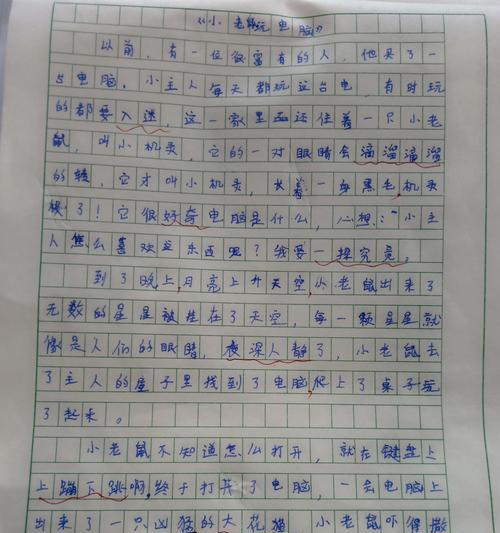 《小老鼠玩电脑》
以前，有一位很富有的人，他买了一
台电脑。小主人每天都玩这台电，有时玩
的都要入迷，这一家里面还住着一只小老
鼠，叫小机灵，它的一对眼睛会滴溜溜溜
的转，它才叫小机灵，长着一身黑毛，机灵
极了！它很好奇电脑是什么，心想：“小主
人怎么喜欢这东西呢？我要一探究竟。
到了晚上，月亮上升天空，小老鼠出来了
无数的星星被挂在了天空，每一颗星星就
像是人们的眼睛，夜深人静了，小老鼠去
了主人的房子里找到了电脑，爬上了桌子玩
了起来。
小老鼠不知道怎么打开，就在键盘上
上蹦下跳啊，终于打开了电脑，一会电脑上
出来了一只凶猛的大花猫，小老鼠吓得撒